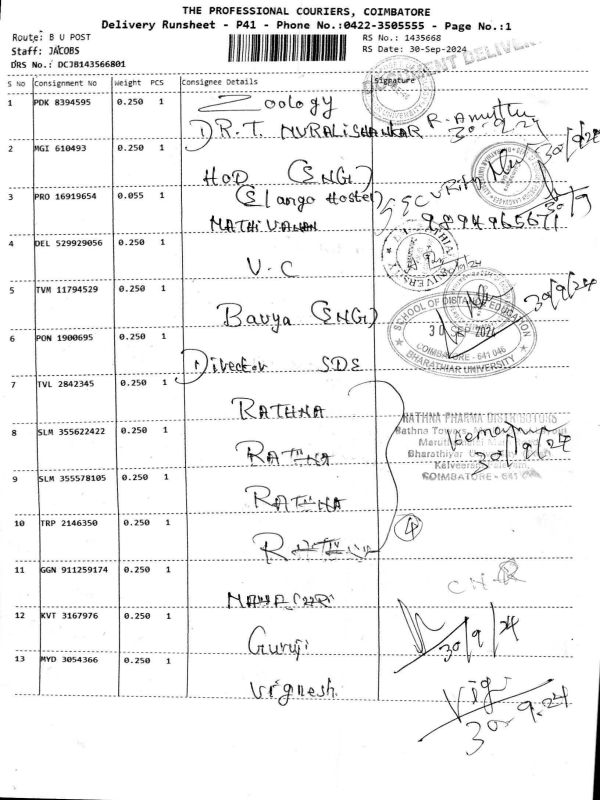 THE PROFESSIONAL COURIERS, COIMBATORE
Delivery Runsheet - P41 - Phone No.:0422-3505555 - Page No.:1
Route: B U POST
RS No.: 1435668
Staff: JACOBS
RS Date: 30-Sep-2024
DRS No.: DCJB143566801
S No Consignment No Weight PCS Consignee Details Signature
1 PDK 8394595 0.250 1 Zoology
DR.T. MURALISHANKAR R. Amuthu 30.9.24
2 MGI 610493 0.250 1 HOD (SNGI) 30/9/24
3 PRO 16919654 0.055 1 Elango Hostel SECURITY 30/9
MATHIVANAN 9894965671
4 DEL 529929056 0.250 1 V.C
5 TVM 11794529 0.250 1 Bavya (SNGI) 30/9/24
SCHOOL OF DISTANCE EDUCATION
30 SEP 2024
COIMBATORE - 641 046
BHARATHIAR UNIVERSITY
6 PON 1900695 0.250 1 Director SDE
7 TVL 2842345 0.250 1 RATHNA
RATHNA PHARMA DISTRIBUTORS
8 SLM 355622422 0.250 1 RATHNA
30/9/24
COIMBATORE - 641
9 SLM 355578105 0.250 1 RATHNA
10 TRP 2146350 0.250 1 RATHNA 4
11 GGN 911259174 0.250 1 CNR
12 KVT 3167976 0.250 1 Guruji 30/9/24
13 MYD 3054366 0.250 1 Vignesh Vig 30.9.24